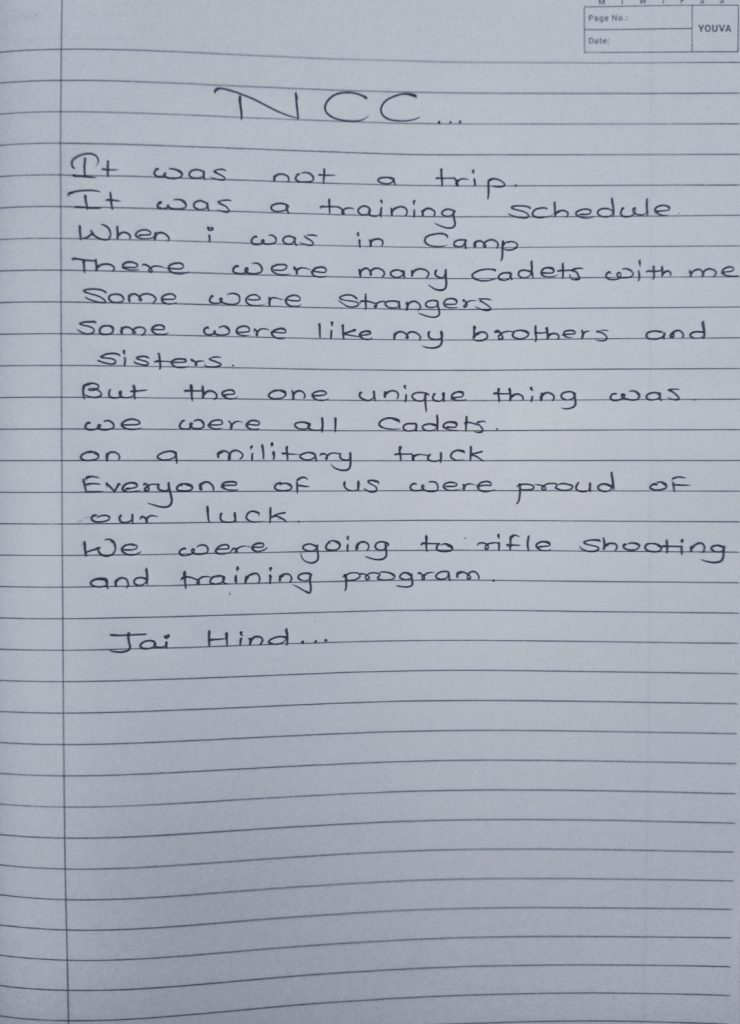 M T W T F S S
Page No.:
YOUVA
Date:
NCC...
It was not a trip.
It was a training schedule.
When i was in Camp
There were many Cadets with me
Some were strangers
Some were like my brothers and
sisters.
But the one unique thing was
we were all Cadets.
on a military truck
Everyone of us were proud of
our luck.
We were going to rifle shooting
and training program.
Jai Hind...